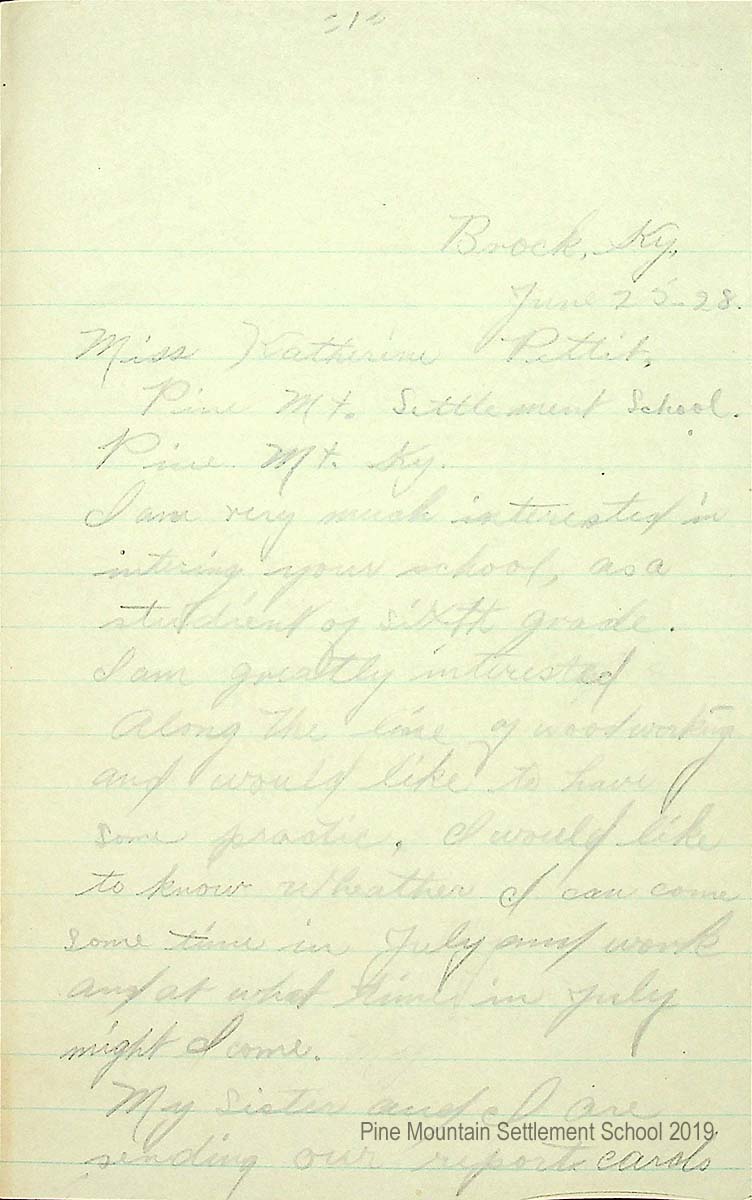 -1-
Brock, Ky,
June 25-28.
Miss Katherine Pettit,
Pine Mt. Settlement School.
Pine Mt. Ky.
I am very much interested in
intering your school, as a
studient of sixth grade.
I am greatly interested
Along the line of woodworking
and would like to have
some practic, I would like
to know wheather I can come
some time in July and work
and at what time in july
might I come.
My Sister and I are
sending our report cards
Pine Mountain Settlement School 2019